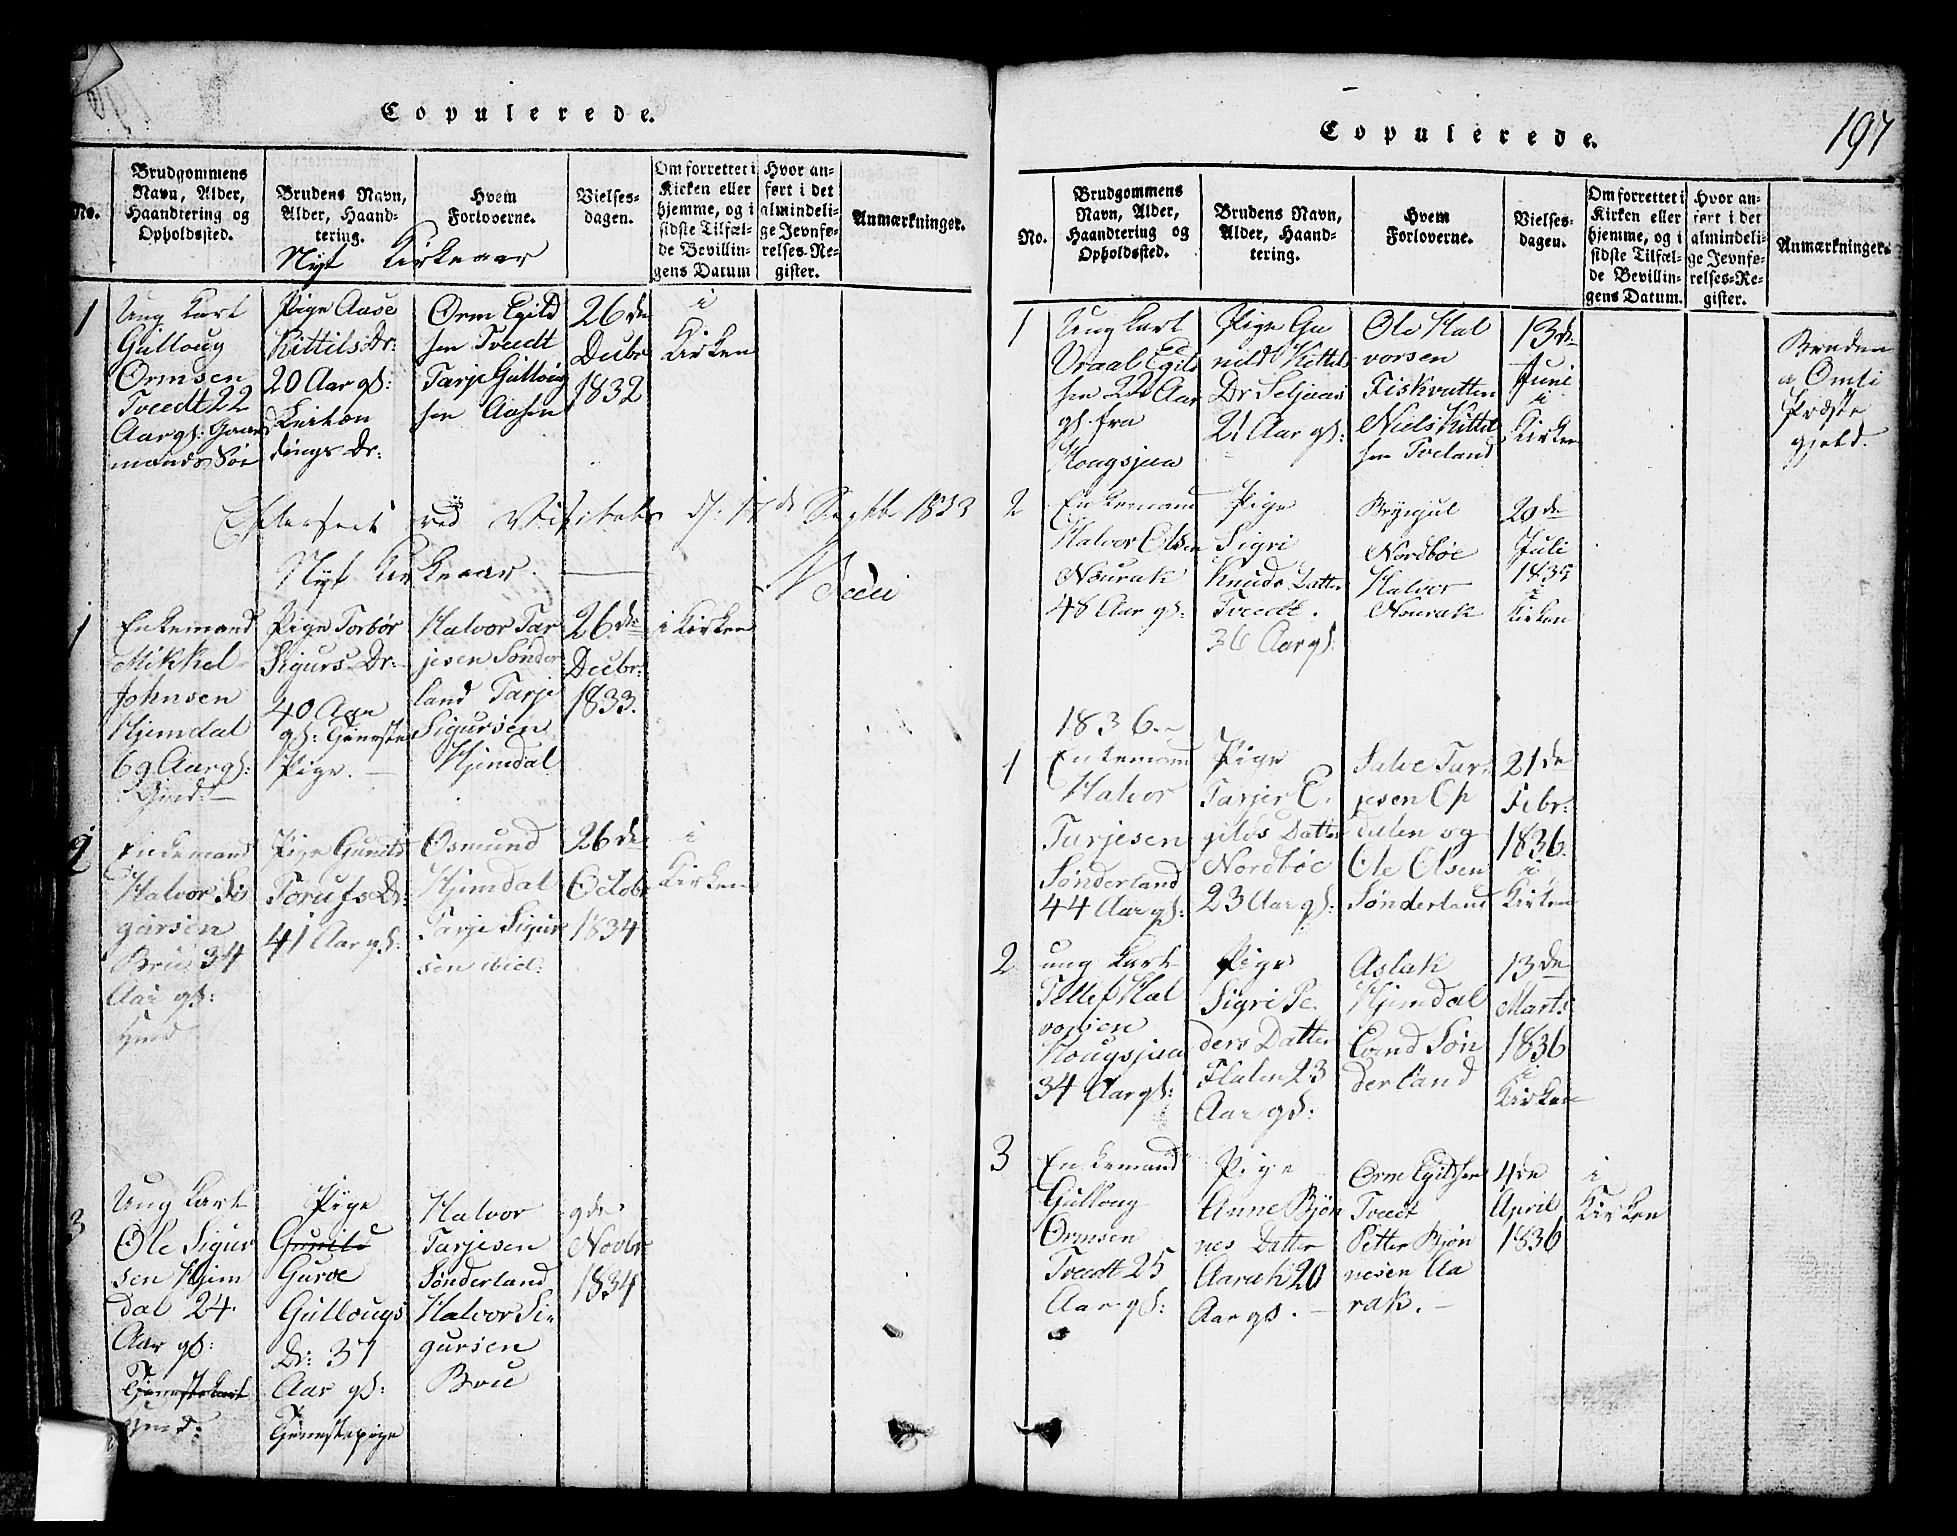 Copulerede.
No.
Brudgommens
Navn, Alder,
Haandtering og
Opholdssted.
Brudens Navn,
Alder, Haand-
tering.
Hvem
Forloverne.
Vielses-
dagen.
Om forrettet i
Kirken eller
hjemme, og i
sidste Tilfæl-
de Bevillin-
gens Datum
Hvor an-
ført i det
almindeli-
ge Jevnfø-
relses-Re-
gister.
Anmærkninger.
Nyt Kirkeaar
1
Ung Karl
Gulloug
Ormsen
Tveedt 22
Aar gl: Gaard
mands Søn
Pige Aase
Kittils Dr:
20 Aar gl:
dings Dr:
Orm Egild
sen Tveedt
Tarje Gulloug
sen Aasen
26de
Decbr
1832
i
Kirken
Efterseet ved Visitats d. 17de Septbr 1833
Nyt Kirkeaar.
1
Enkemand
Mikkel
Johnsen
Hjemdal
69 Aar gl:
Pige Torbør
Sigurs Dr:
40 Aar
gl: Tjeneste
Pige.
Halvor Tar
jesen Sønder
land Tarje
Sigursen
Hjemdal
26de
Decbr:
1833.
i Kirken
2
Enkemand
Halvor Si
gursen
Bru 34
Aar gl:
Pige Gunild
Torufs Dr:
41 Aar gl:
Osmund
Hjemdal
Tarje Sigur
sen ibid:
26de
Octobr
1834
i
Kirken
3
Ung Karl
Ole Sigur
sen Hjem
dal 24
Aar gl:
Tjenestekarl
Pige
Gunild
Guroe
Gullougs
Dr: 37
Aar gl:
Tjenestepige
Halvor
Tarjesen
Sønderland
Halvor Si-
gursen
Bru
9de
Novbr
1834
Copulerede.
197
No.
Brudgommens
Navn, Alder,
Haandtering og
Opholdssted.
Brudens Navn,
Alder, Haand-
tering.
Hvem
Forloverne.
Vielses-
dagen.
Om forrettet i
Kirken eller
hjemme, og i
sidste Tilfæl-
de Bevillin-
gens Datum.
Hvor an-
ført i det
almindeli-
ge Jevnfø-
relses-Re-
gister.
Anmærkninger.
1
Ung Karl
Vraal Egild
sen 22 Aar
gl. fra
Hougsjaa
Pige Gu
nild Kittels
Dr Seljaas
21 Aar gl:
Ole Hal
vorsen
Fiskvatten
Niels Kittel
sen Tveland
13de
Juni
i
Kirken
Bruden
a Omli
Præste
gjeld.
2
Enkemand
Halvor Olsen
Nourak
48 Aar gl:
Pige
Sigri
Knuds Datter
Tveedt.
36 Aar gl.
Brynjul
Nordbøe
Halvor
Nourak
20de
Juli
1835
i
Kirken
1836.
1
Enkemand
Halvor
Tarjesen
Sønderland
44 Aar gl:
Pige
Tarjer E.
gilds Datter
Nordbøe
23 Aar gl:
Salve Tar
jesen Op
dalen og
Ole Olsen
Sønderland
21de
Febr:
1836.
i
Kirken
2
ung Karl
Tellef Hal
vorsen
Hougsjaa
34 Aar gl:
Pige
Sigri Pe
ders Datter
Flaten 23
Aar gl:
Aslak
Hjemdal
Evend Søn
derland
13de
Marts
1836
i
Kirken
3
Enkemand
Gulloug
Ormsen
Tvedt 25
Aar gl:
Pige
Anne Bjøn
nes Datter
Aarak 20
Aar gl.
Orm Egildsen
Tvedt
Petter Bjøn
nesen Aa
rak.
4de
April
1836
i
Kirken